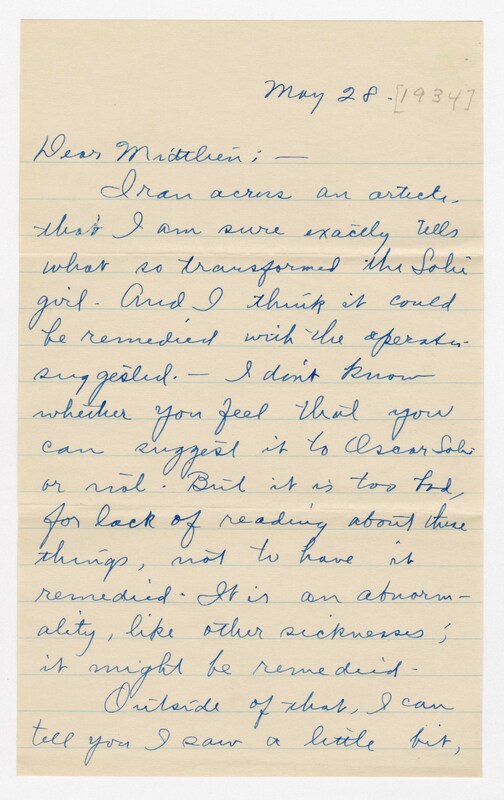 May 28 - [1934]
Dear Mittlieu; —
I ran across an article,
that I am sure exactly tells
what so transformed the Solie
girl - And I think it could
be remedied with the operation
suggested. - I don't know
whether you feel that you
can suggest it to Oscar Solie
or not. But it is too bad,
for lack of reading about these
things, not to have it
remedied. It is an abnorm-
ality, like other sicknesses;
it might be remedied -
Outside of that, I can
tell you I saw a little bit,